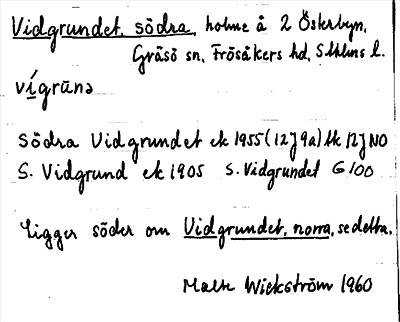 Vidgrundet, södra, holme å 2 Österbyn,
Gräsö sn, Frösåkers hd, Sthlms l.
vígrūnə
Södra Vidgrundet ek 1955 (12J9a) tk 12J NO
S. Vidgrund ek 1905 S. Vidgrundet G 100
Ligger söder om Vidgrundet, norra, se detta.
Malte Wickström 1960